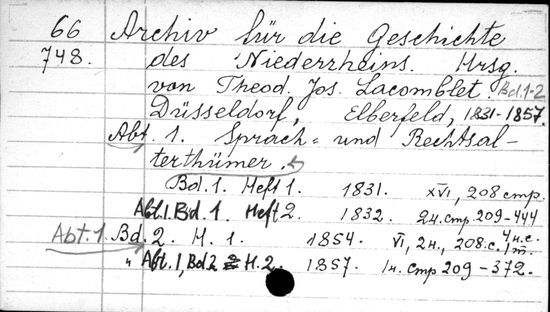 66 Archiv für die Geschichte
748. des Niederrheins. Hrsg.
von Theod. Jos. Lacomblet. Bd.1-2
Düsseldorf, Elberfeld, 1831-1857.
Abt. 1. Sprach= und Rechtsal-
terthümer.
Bd.1. Heft 1. 1831. XVI, 208 стр.
Abt.1. Bd.1. Heft 2. 1832. 2н. стр 209-444
Abt.1. Bd.2. H.1. 1854. VI, 2н., 208.с. 4н.с.
" Abt.1, Bd 2 H.2. 1857. 1н. стр 209-372.